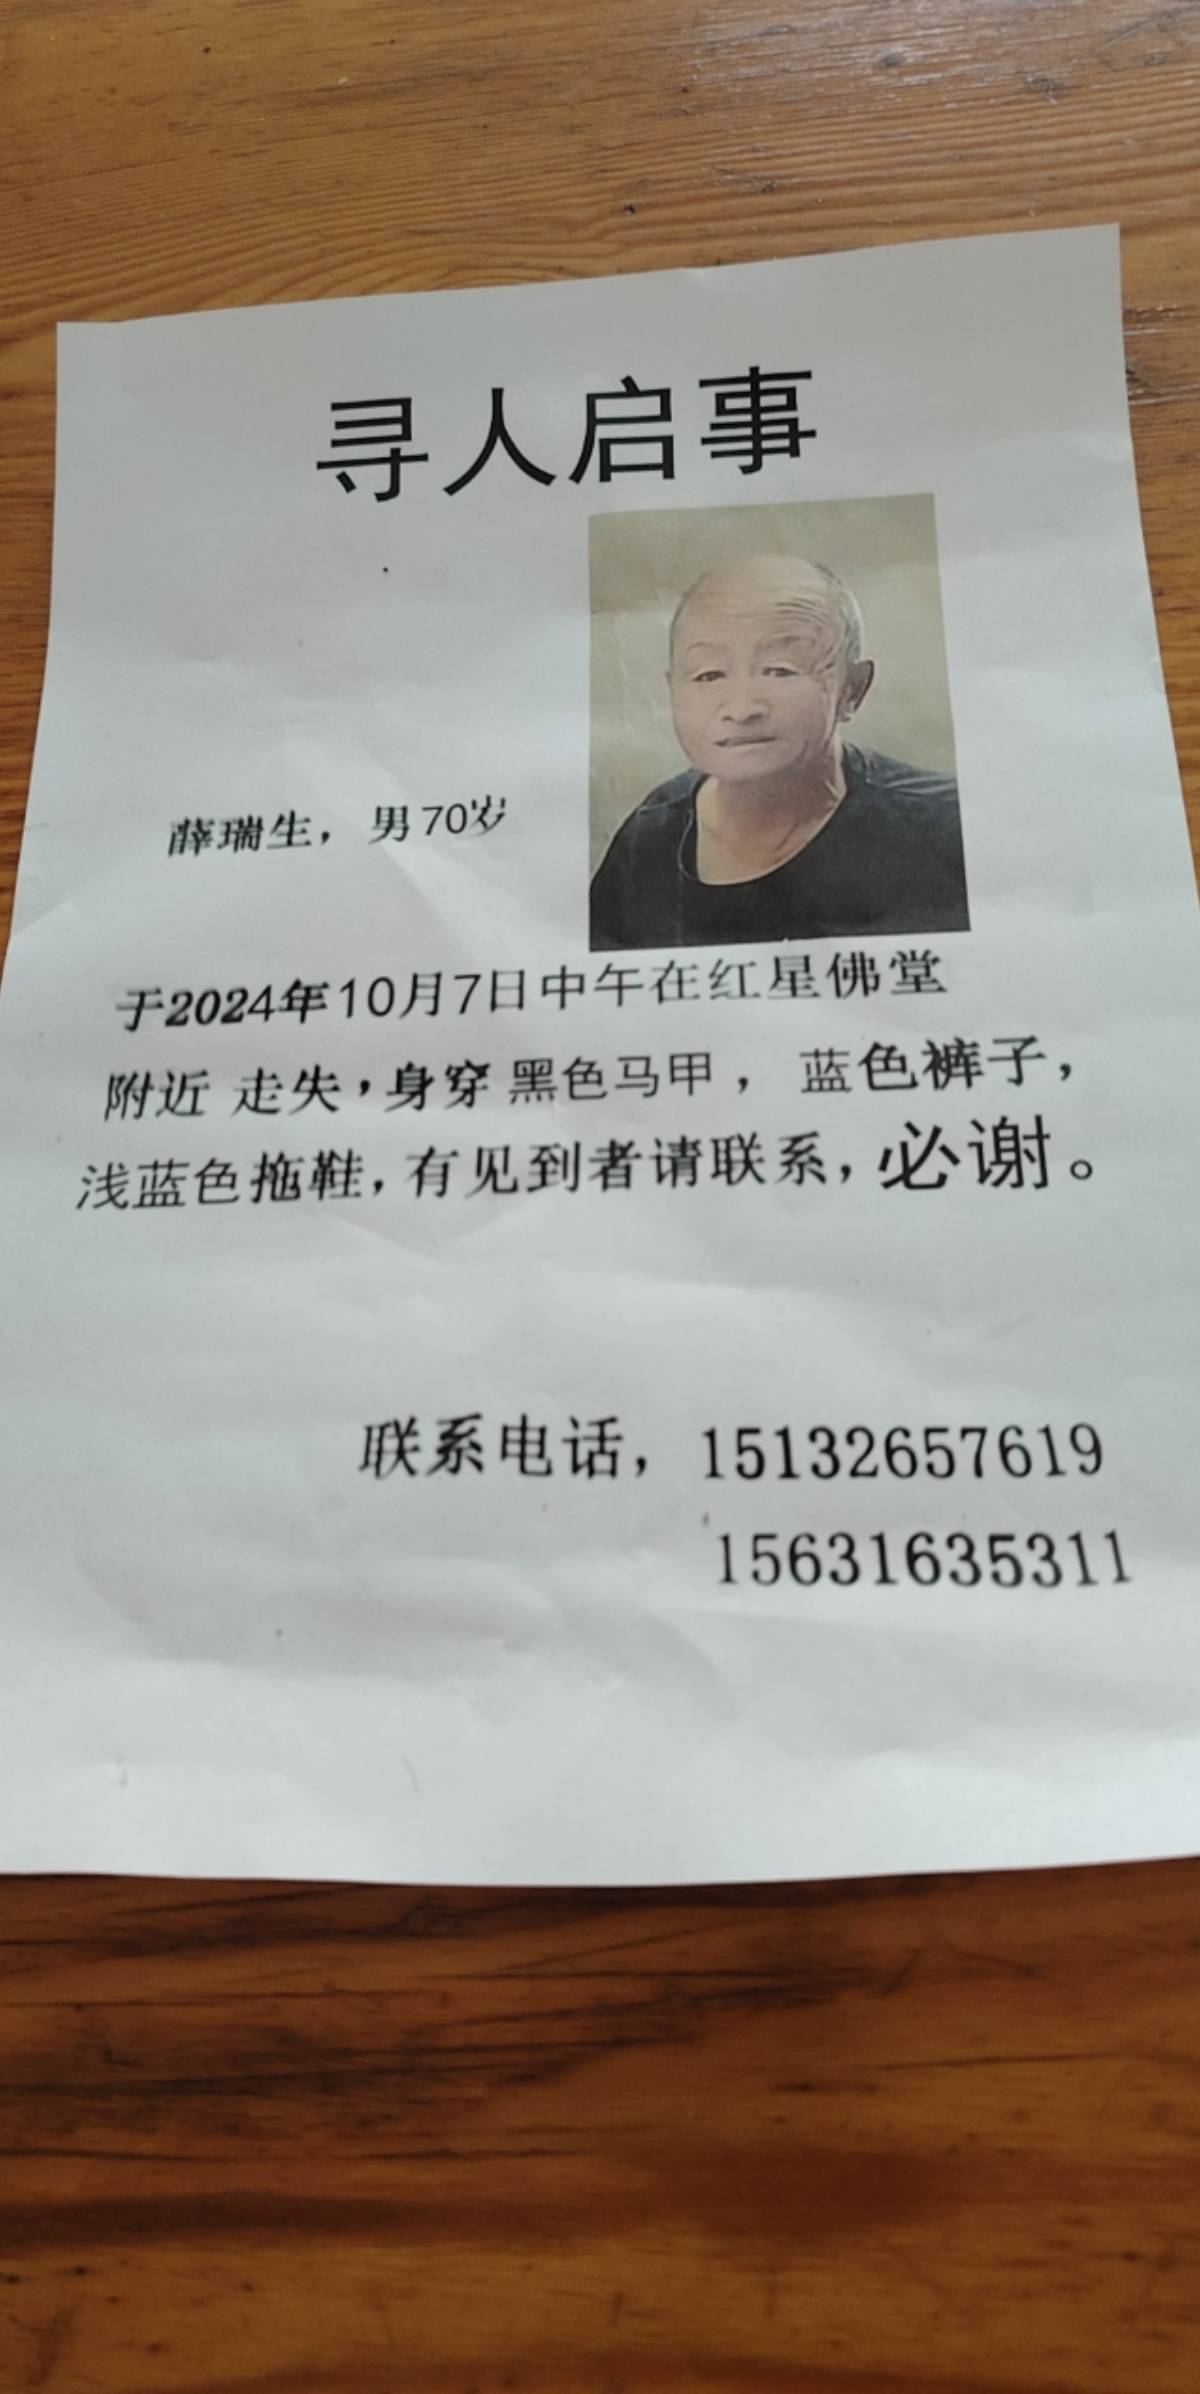 寻人启事
薛瑞生，男70岁
于2024年10月7日中午在红星佛堂
附近 走失，身穿 黑色马甲，蓝色裤子，
浅蓝色拖鞋，有见到者请联系，必谢。
联系电话，15132657619
15631635311